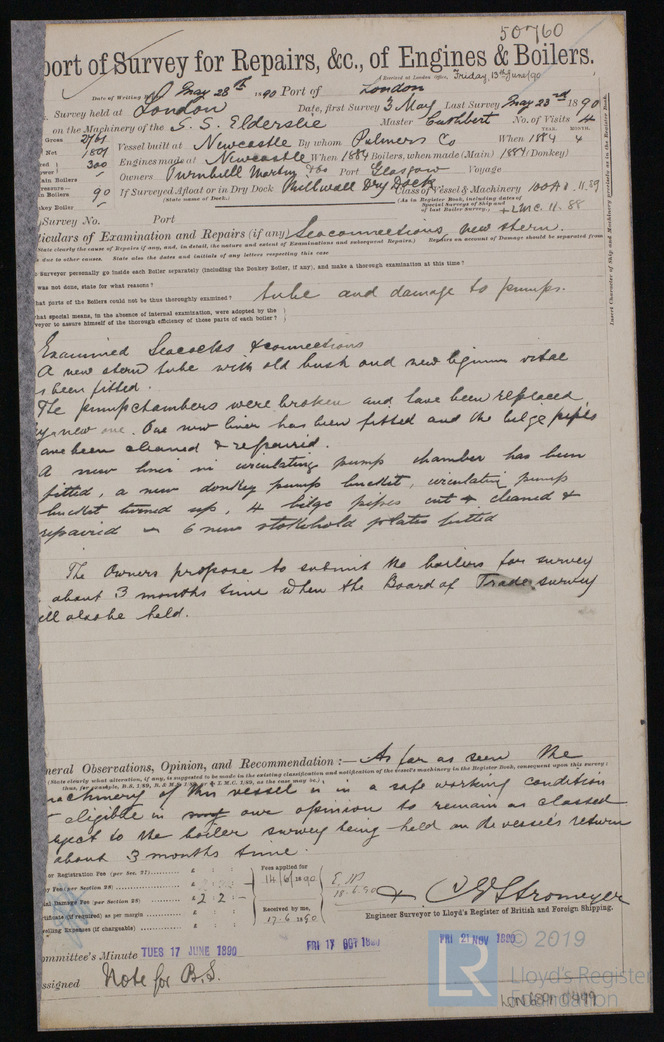 50760
port of Survey for Repairs, &c., of Engines & Boilers.
(Received at London Office, Friday, 13th June/90
Date of Writing May 28th 1890 Port of London
Survey held at London Date, first Survey 3 May Last Survey May 23rd 1890
on the Machinery of the S. S. Elderslie Master Cuthbert No. of Visits 4
YEAR. MONTH.
Gross 2761
Net 1801 Vessel built at Newcastle By whom Palmers Co When 1884 4
300 Engines made at Newcastle When 1884 Boilers, when made (Main) 1884 (Donkey)
Owners Turnbull Martin & Co Port Glasgow Voyage
90 If Surveyed Afloat or in Dry Dock Millwall Dry Dock Class of Vessel & Machinery 100A1 11.89
(State name of Dock.) (As in Register Book, including dates of Special Surveys of Ship and of last Boiler Survey.) +LMC. 11.88
Survey No. Port
ticulars of Examination and Repairs (if any) Sea connections, new stern
Repairs on account of Damage should be separated from
due to other causes. State also the dates and initials of any letters respecting this case
Surveyor personally go inside each Boiler separately (including the Donkey Boiler, if any), and make a thorough examination at this time?
was not done, state for what reasons?
hat parts of the Boilers could not be thoroughly examined? tube and damage to pumps.
hat special means, in the absence of internal examination, were adopted by the
veyor to assure himself of the thorough efficiency of those parts of each boiler?
Insert Character of Ship and Machinery precisely as in the Register Book.
Examined Seacocks & connections
A new stern tube with old bush and new lignum vitae
s been fitted.
The pump chambers were broken and have been replaced
by new one. One new liner has been fitted and the bilge pipes
ave been cleaned & repaired.
A new liner in circulating pump chamber has been
fitted, a new donkey pump bucket, circulating pump
bucket turned up, 4 bilge pipes cut & cleaned &
repaired 6 new stokehold plates fitted
The Owners propose to submit the boilers for survey
about 3 months time when the Board of Trade survey
ill also be held.
neral Observations, Opinion, and Recommendation :— As far as seen the
(State clearly what alteration, if any, is suggested to be made in the existing classification and notification of the vessel's machinery in the Register Book, consequent upon this survey;
machinery of this vessel is in a safe working condition
eligible in our opinion to remain as classed
subject to the boiler survey being held on the vessel's return
about 3 months time.
or Registration Fee (per Sec. 27) £ : :
y Fee (per Section 28) £
ial Damage Fee (per Section 28) £ 2 : 2 : -
rtificate (if required) as per margin £
velling Expenses (if chargeable) £
Fees applied for
14/6/1890
Received by me,
17.6.1890
C E Stromeyer
Engineer Surveyor to Lloyd's Register of British and Foreign Shipping.
ommittee's Minute TUES 17 JUNE 1890 FRI 17 OCT 1890 FRI 21 NOV 1890
ssigned Note for B.S.
LR © 2019
Lloyd's Register
Foundation
LON689-0499